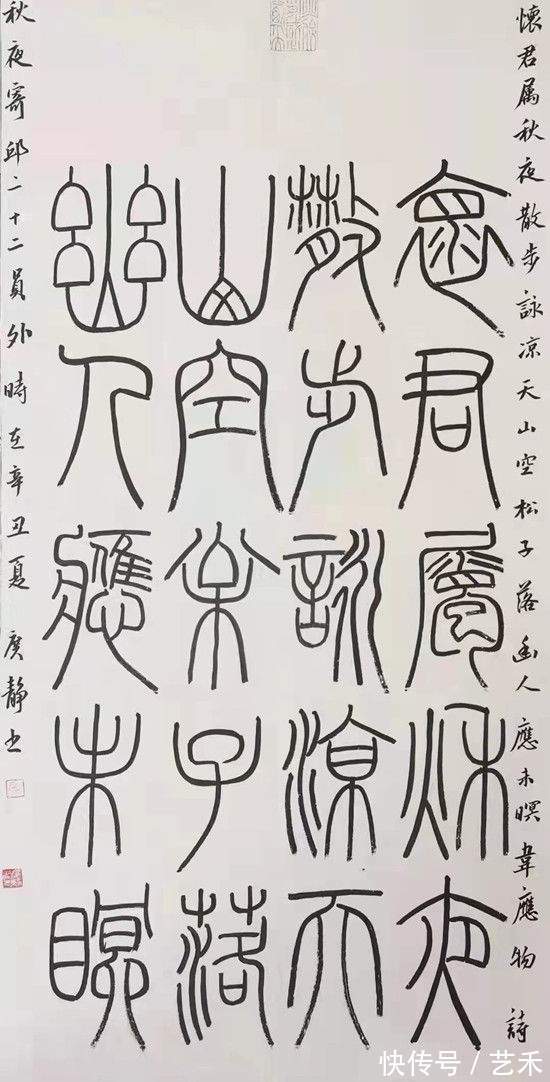 懷君属秋夜散步詠凉天山空松子落幽人應未暝韋應物詩
懷君屬秋夜
散步詠涼天
山空松子落
幽人應未瞑
秋夜寄邱二十二員外時在辛丑夏廣靜书
快传号 / 艺禾